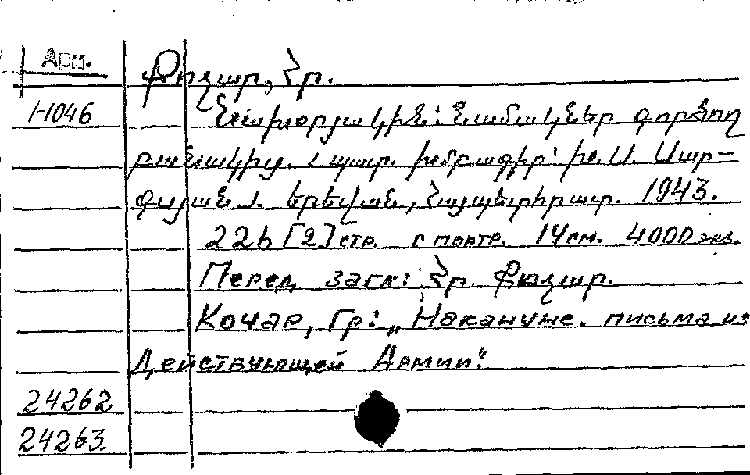 Арм.
Քոչար, Հր.
1-1046 Նախօրյակին: Նամակներ գործող
բանակից. պատ. խմբագիր՝ խ. Ս. Սար-
գսյան. Երեվան, Հայպետհրատ. 1943.
226 [2] стр. с портр. 14 см. 4000 экз.
Перед загл: Հր. Քոչար.
Кочар, Гр: „Накануне. письма из
Действующей Армии."
24262
24263.